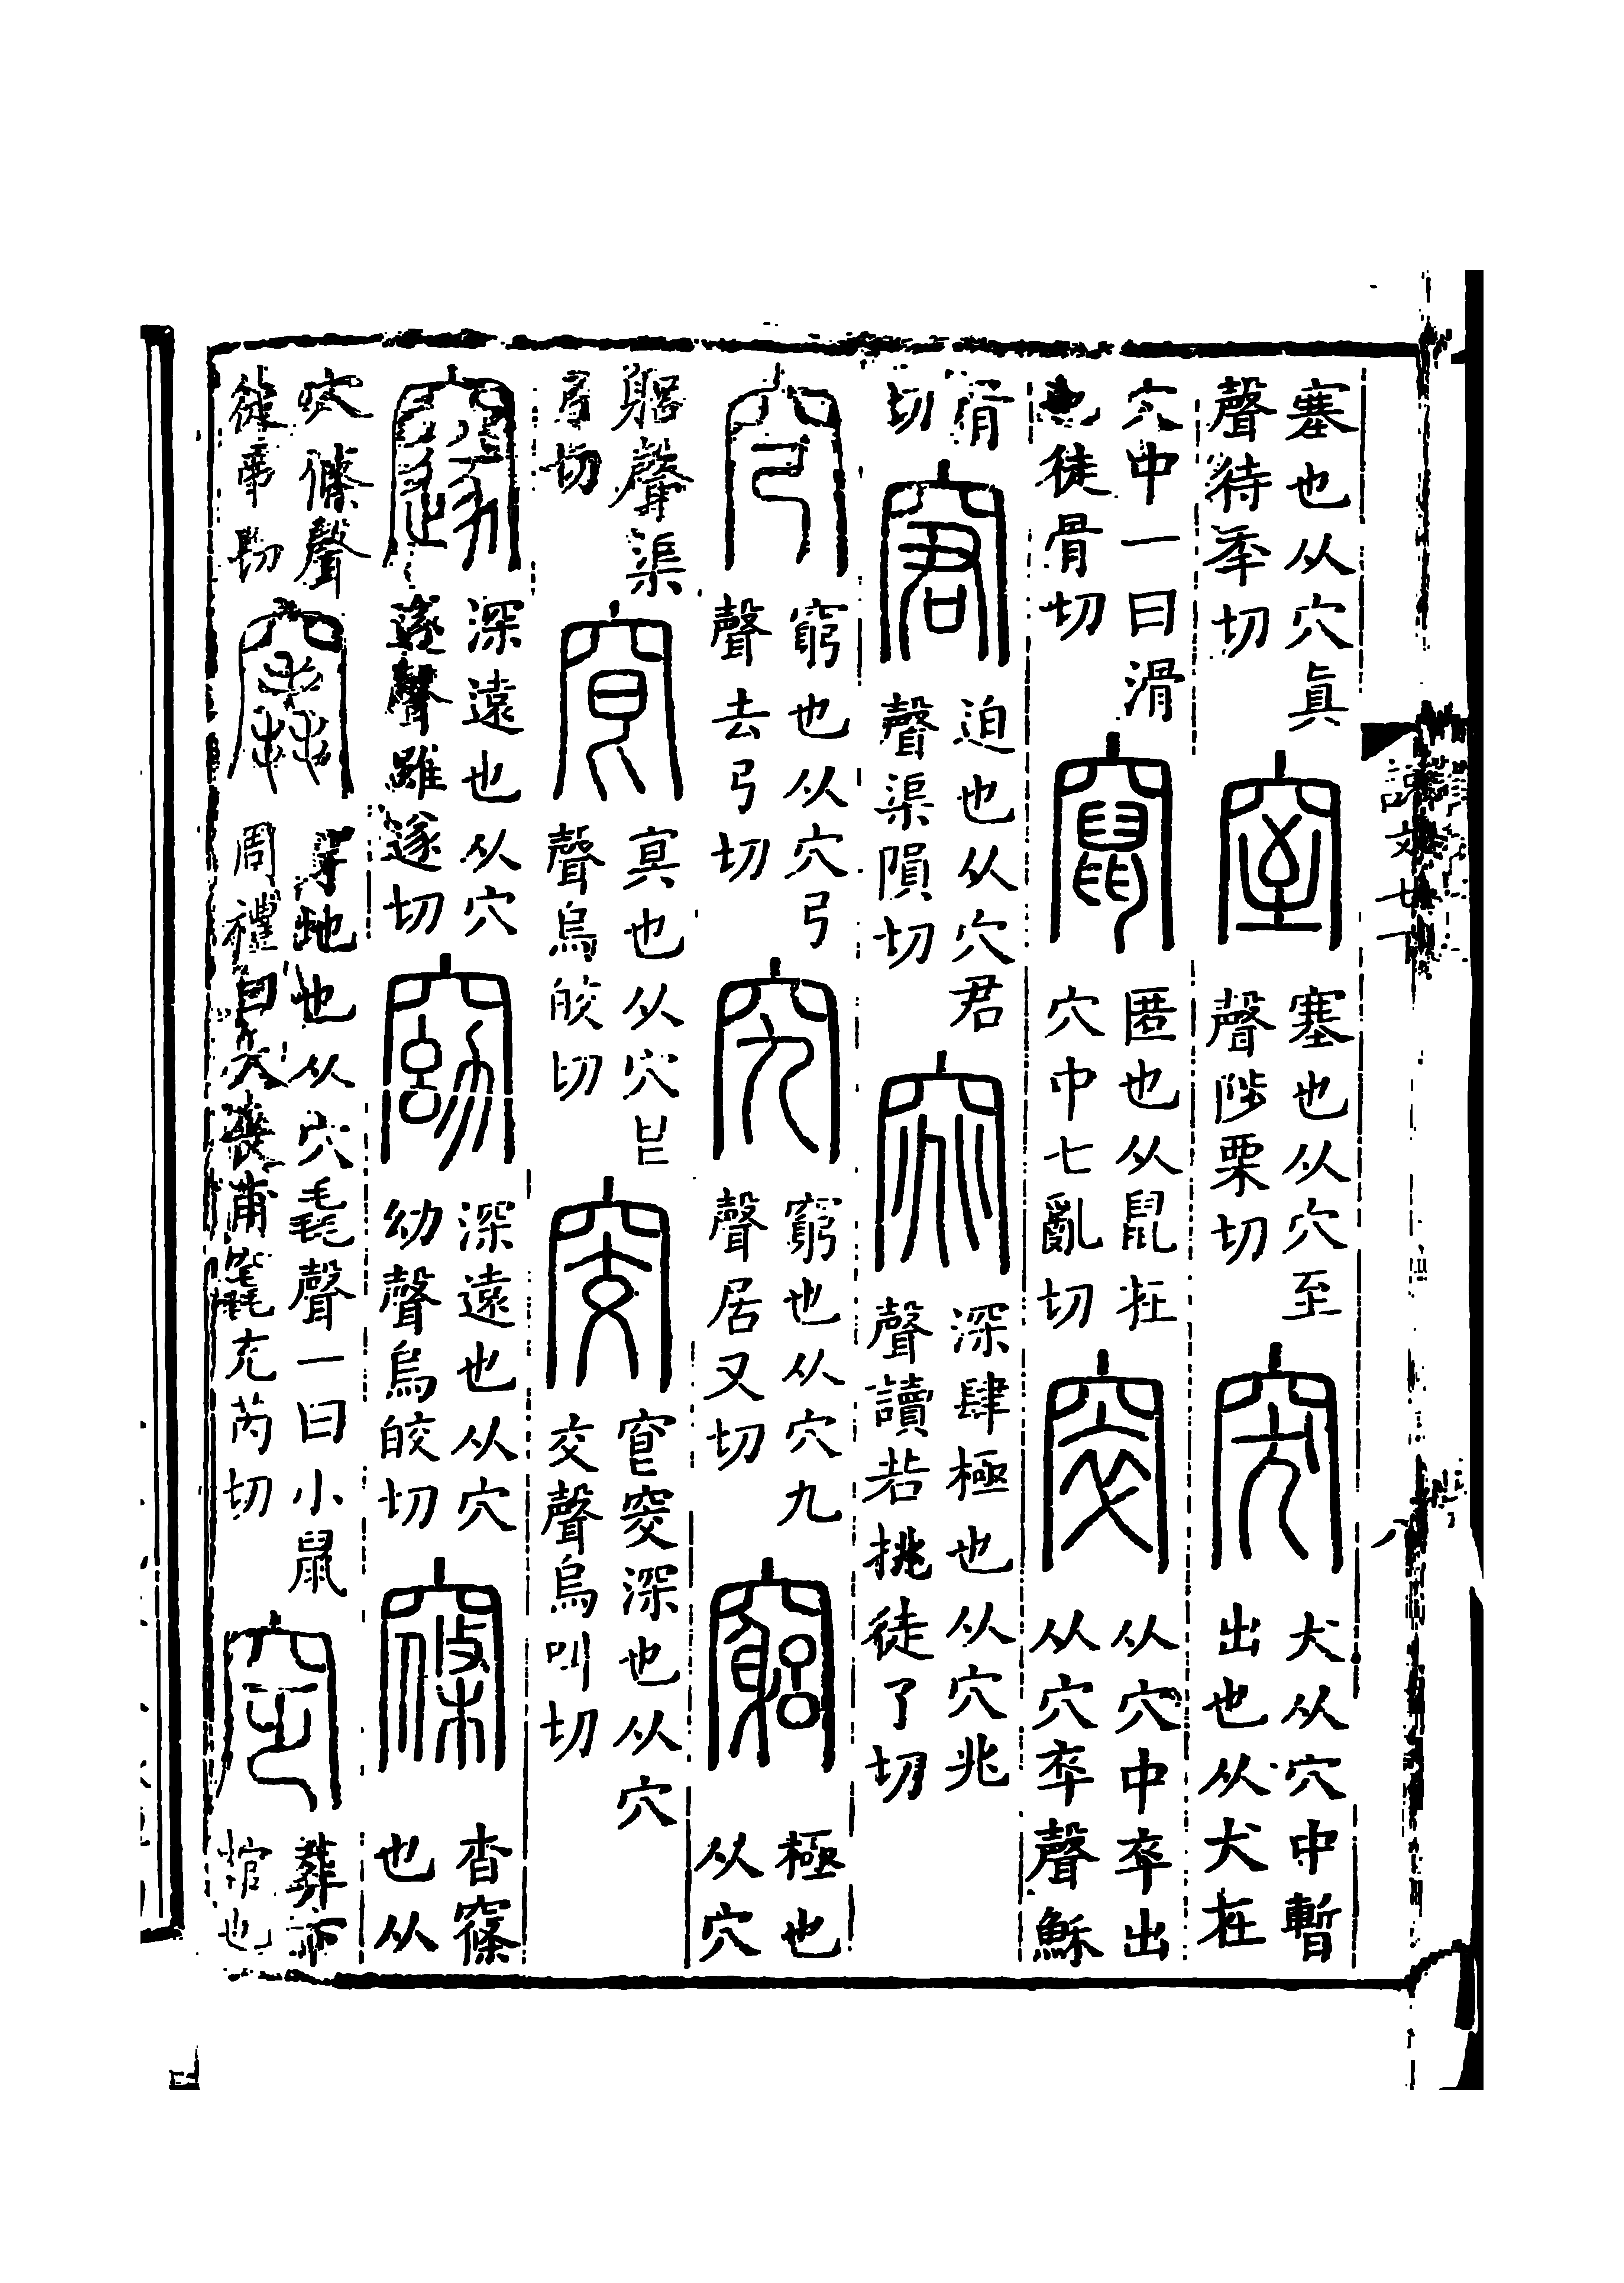 塞也从穴真
聲待秊切
窒
塞也从穴至
聲陟栗切
突
犬从穴中暫
出也从犬在
穴中一曰滑
也徒骨切
竄
匿也从鼠在
穴中七亂切
窣
从穴中卒出
从穴卒聲穌
骨
切
窘
迫也从穴君
聲渠隕切
窕
深肆極也从穴兆
聲讀若挑徒了切
穹
窮也从穴弓
聲去弓切
究
窮也从穴九
聲居又切
竆
極也
从穴
躳聲渠
弓切
窅
冥也从穴㠯
聲烏皎切
窔
窅窔深也从穴
交聲烏叫切
邃
深遠也从穴
遂聲雖遂切
窈
深遠也从穴
幼聲烏皎切
窱
杳窱
也从
穴條聲
徒弔切
竁
穿地也从穴毳聲一曰小鼠
周禮曰大喪甫竁充芮切
窆
葬下
棺也